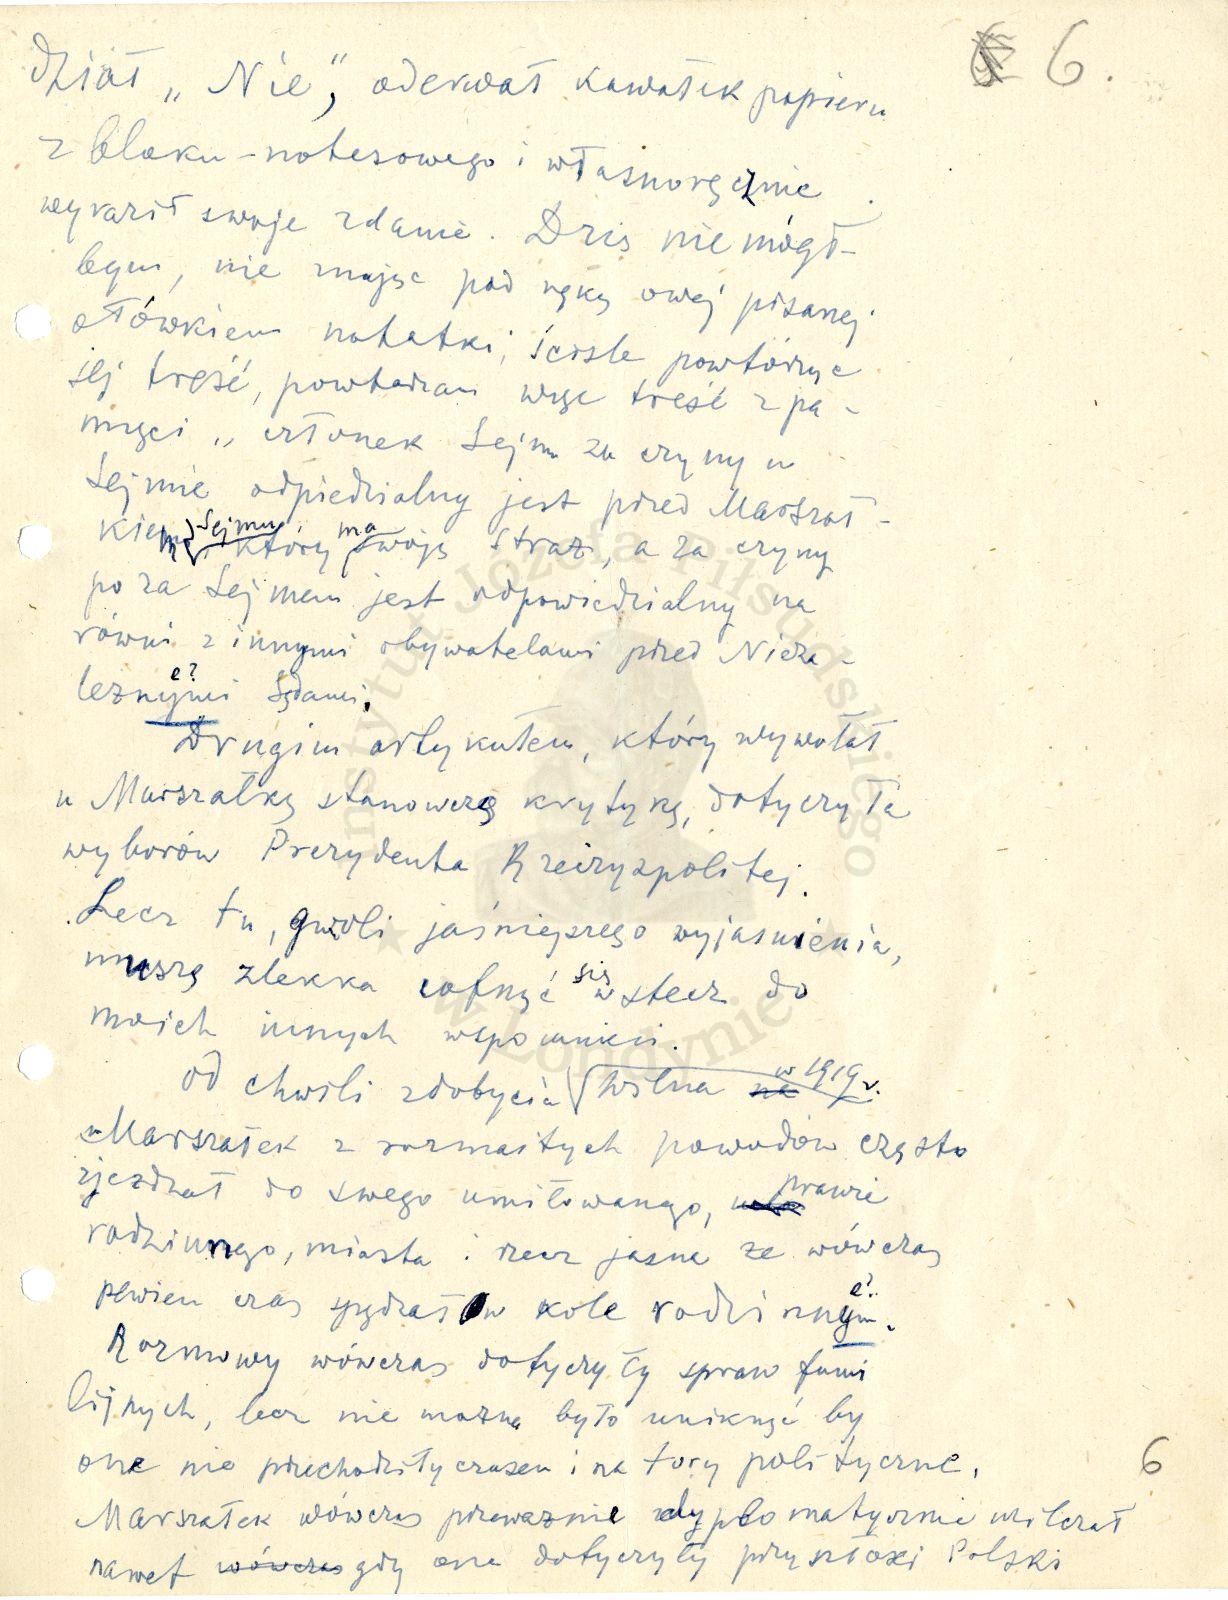 6.
dział „Nie”, oderwał kawałek papieru
z bloku-notesowego i własnoręcznie
wyraził swoje zdanie. Dziś nie mógł-
bym, nie mając pod ręką owej pisanej
ołówkiem notatki, ściśle powtórzyć
jej treść, powtarzam więc treść z pa-
mięci „członek Sejmu za czyny w
Sejmie odpiedzialny jest przed Marszał-
kiem Sejmu, który ma swoją Straż, a za czyny
poza Sejmem jest odpowiedzialny na
równi z innymi obywatelami przed Nieza-
e?
leżnymi Sądami.
Drugim artykułem, który wywołał
u Marszałka stanowczą krytykę, dotyczyła
wyborów Prezydenta Rzeczyspolitej.
Lecz tu, gwoli jaśniejszego wyjaśnienia,
muszę zlekka cofnąć się wstecz do
moich innych wspomnień.
Od chwili zdobycia Wilna na w 1919 r.
Marszałek z rozmaitych powodów często
zjeżdżał do swego umiłowanego, prawie
rodzinnego, miasta i rzecz jasna że wówczas
e?
pewien czas spędzał w kole rodzinnym.
Rozmowy wówczas dotyczyły spraw fami
lijnych, lecz nie można było uniknąć by
one nie przechodziły czasem i na tory polityczne.
6
Marszałek wówczas przeważnie dyplomatycznie milczał
nawet wówczas gdy one dotyczyły przyszłości Polski
Instytut Józefa Piłsudskiego
w Londynie